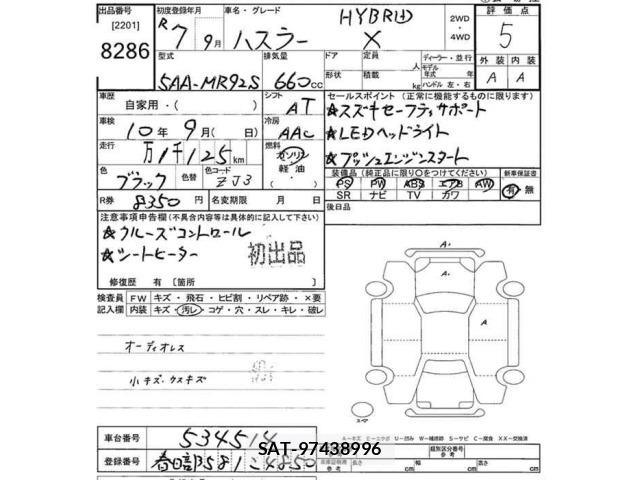 出品番号 初度登録年月 車名・グレード 評価点
[2201] R7 9月 ハスラー HYBRID X 2WD・4WD 5
8286
型式 排気量 ドア 定員 人 ディーラー・並行 外装 内装
5AA-MR92S 660cc 形状 積載 kg モデル年式 年式 ハンドル 左・右 A A
車歴 自家用・( ) シフト AT セールスポイント (正常に機能するものに限ります)
★スズキセーフティサポート
車検 10年9月( 日) 冷房 AAC ★LEDヘッドライト
走行 万1千125km 燃料 ガソリン 軽油・ ★プッシュエンジンスタート
色 ブラック 色替 色コード ZJ3 装備品 (純正品に限り○をつけてください) 新車保証書
PS PW ABS エアB AW 有・無
SR ナビ TV カワ
R券 8350円 名変期限 月 日 後日品
注意事項申告欄 (不具合内容等は具体的に記入して下さい)
★クルーズコントロール
★シートヒーター 初出品
修復歴 有 [箇所 ]
検査員 FW キズ・飛石・ヒビ割・リペア跡・×要
記入欄 内装 キズ・汚レ・コゲ・穴・スレ・キレ・破レ
A
A
A
オーディオレス
小キズ・ウスキズ
車台番号 534514
SAT-97438996
登録番号 春日部581 こ4850
組別区分番号
参考
長さ cm 幅 cm 高さ cm